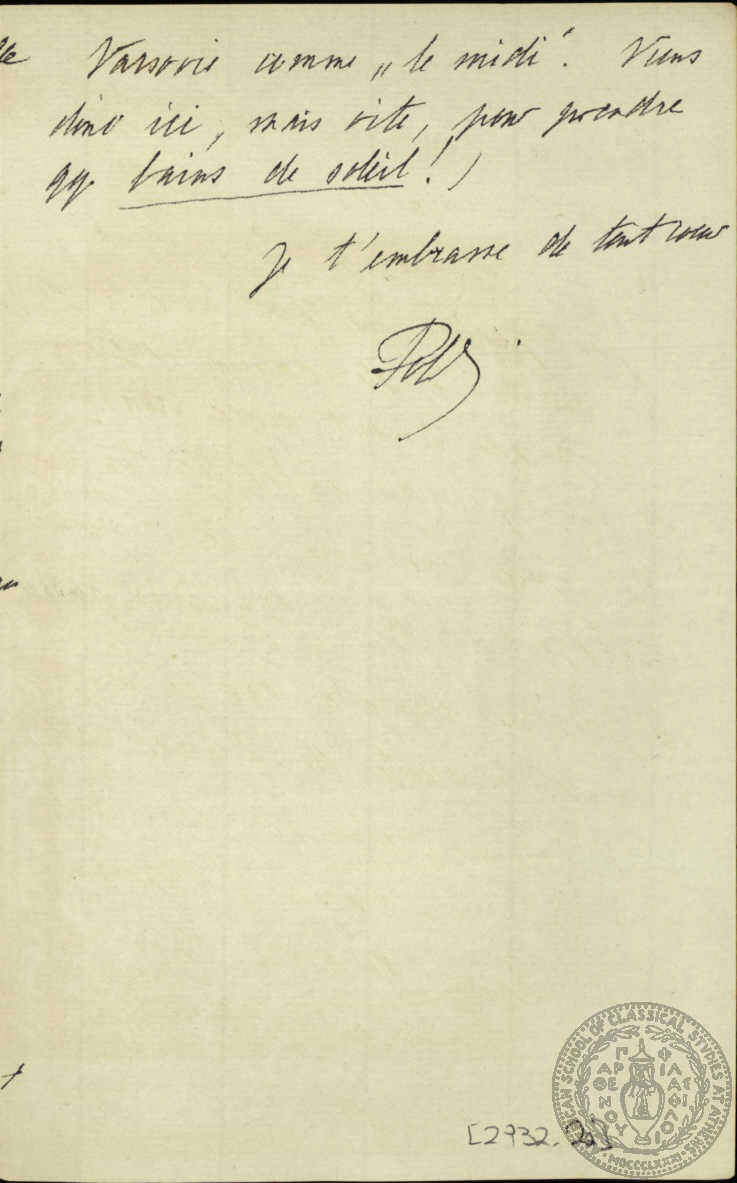 Varsovie comme „le midi“. Viens
donc ici, mais vite, pour prendre
qq. bains de soleil!)
Je t'embrasse de tout coeur
[2932.
AMERICAN SCHOOL OF CLASSICAL STUDIES AT ATHENS
ΠΑΡΘΕΝΟΥ ΦΙΛΑΣ ΦΙΛΟΙ
MDCCCLXXXI